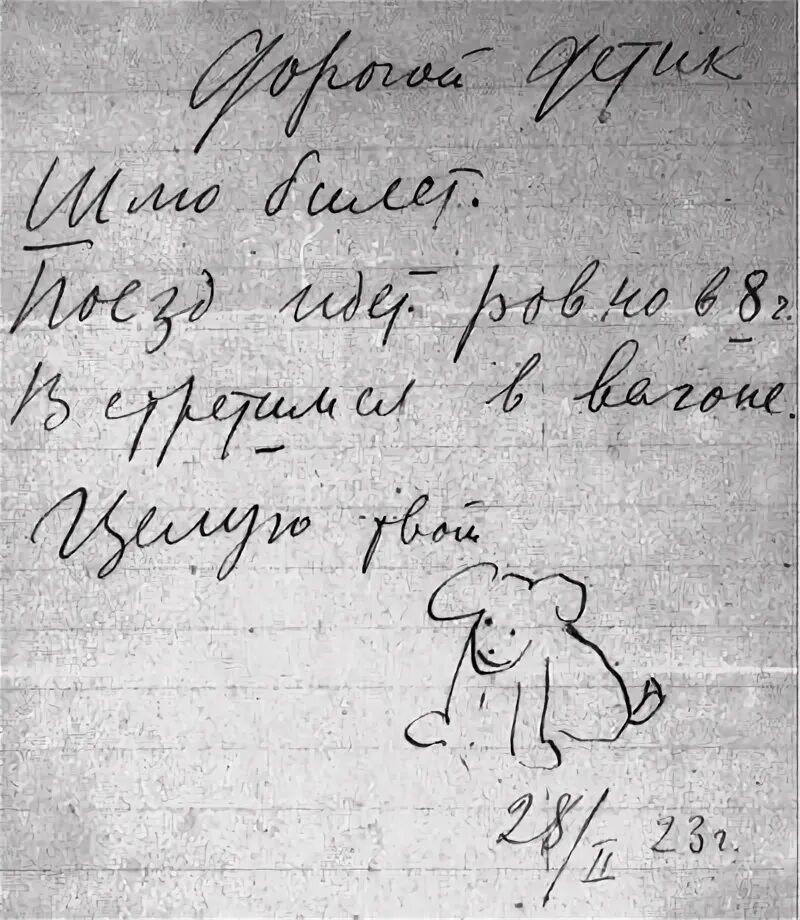 Дорогой Детик
Шлю билет.
Поезд идет ровно в 8 г.
Встретимся в вагоне.
Целую твой
28/II 23г.